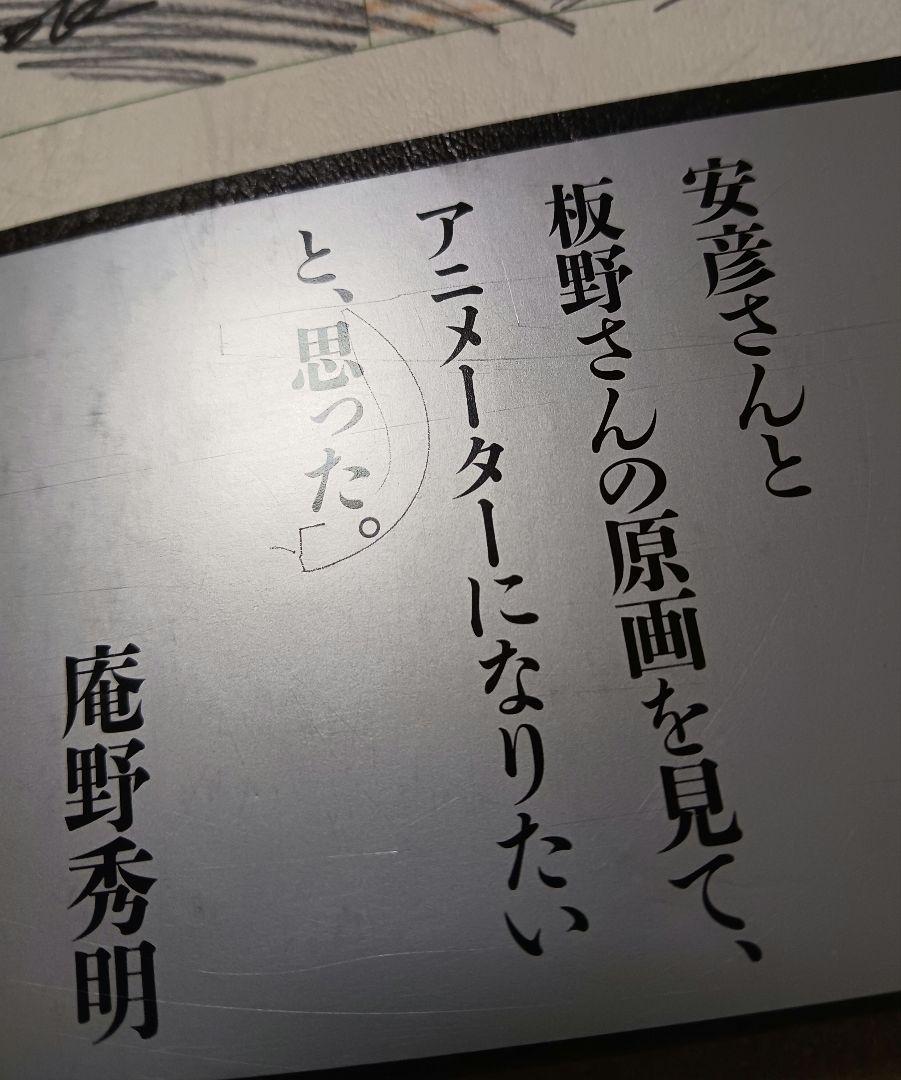 安彦さんと
板野さんの原画を見て、
アニメーターになりたい
と、思った。
庵野秀明